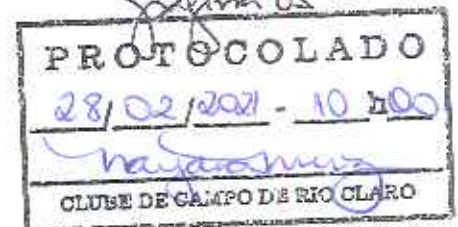 PROTOCOLADO
28/02/2021 - 10 h00
CLUBE DE CAMPO DE RIO CLARO